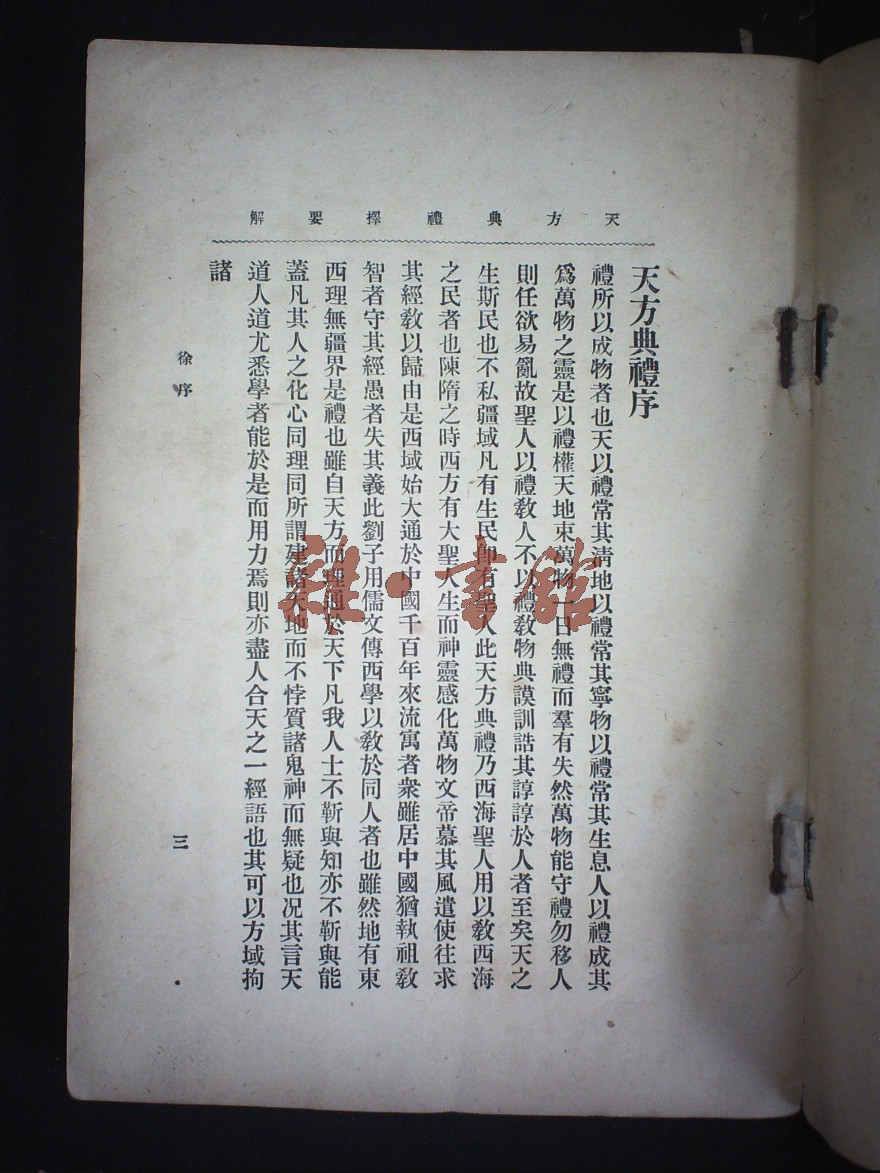 天方典禮擇要解
天方典禮序
禮所以成物者也天以禮常其淸地以禮常其寧物以禮常其生息人以禮成其
爲萬物之靈是以禮權天地束萬物一日無禮而羣有失然萬物能守禮勿移人
則任欲易亂故聖人以禮敎人不以禮敎物典謨訓誥其諄諄於人者至矣天之
生斯民也不私疆域凡有生民卽有聖人此天方典禮乃西海聖人用以敎西海
之民者也陳隋之時西方有大聖人生而神靈感化萬物文帝慕其風遣使往求
其經敎以歸由是西域始大通於中國千百年來流寓者衆雖居中國猶執祖敎
智者守其經愚者失其義此劉子用儒文傳西學以敎於同人者也雖然地有東
西理無疆界是禮也雖自天方而理通於天下凡我人士不靳與知亦不靳與能
蓋凡其人之化心同理同所謂建諸天地而不悖質諸鬼神而無疑也况其言天
道人道尤悉學者能於是而用力焉則亦盡人合天之一經語也其可以方域拘
諸
徐序
三
雜·書館